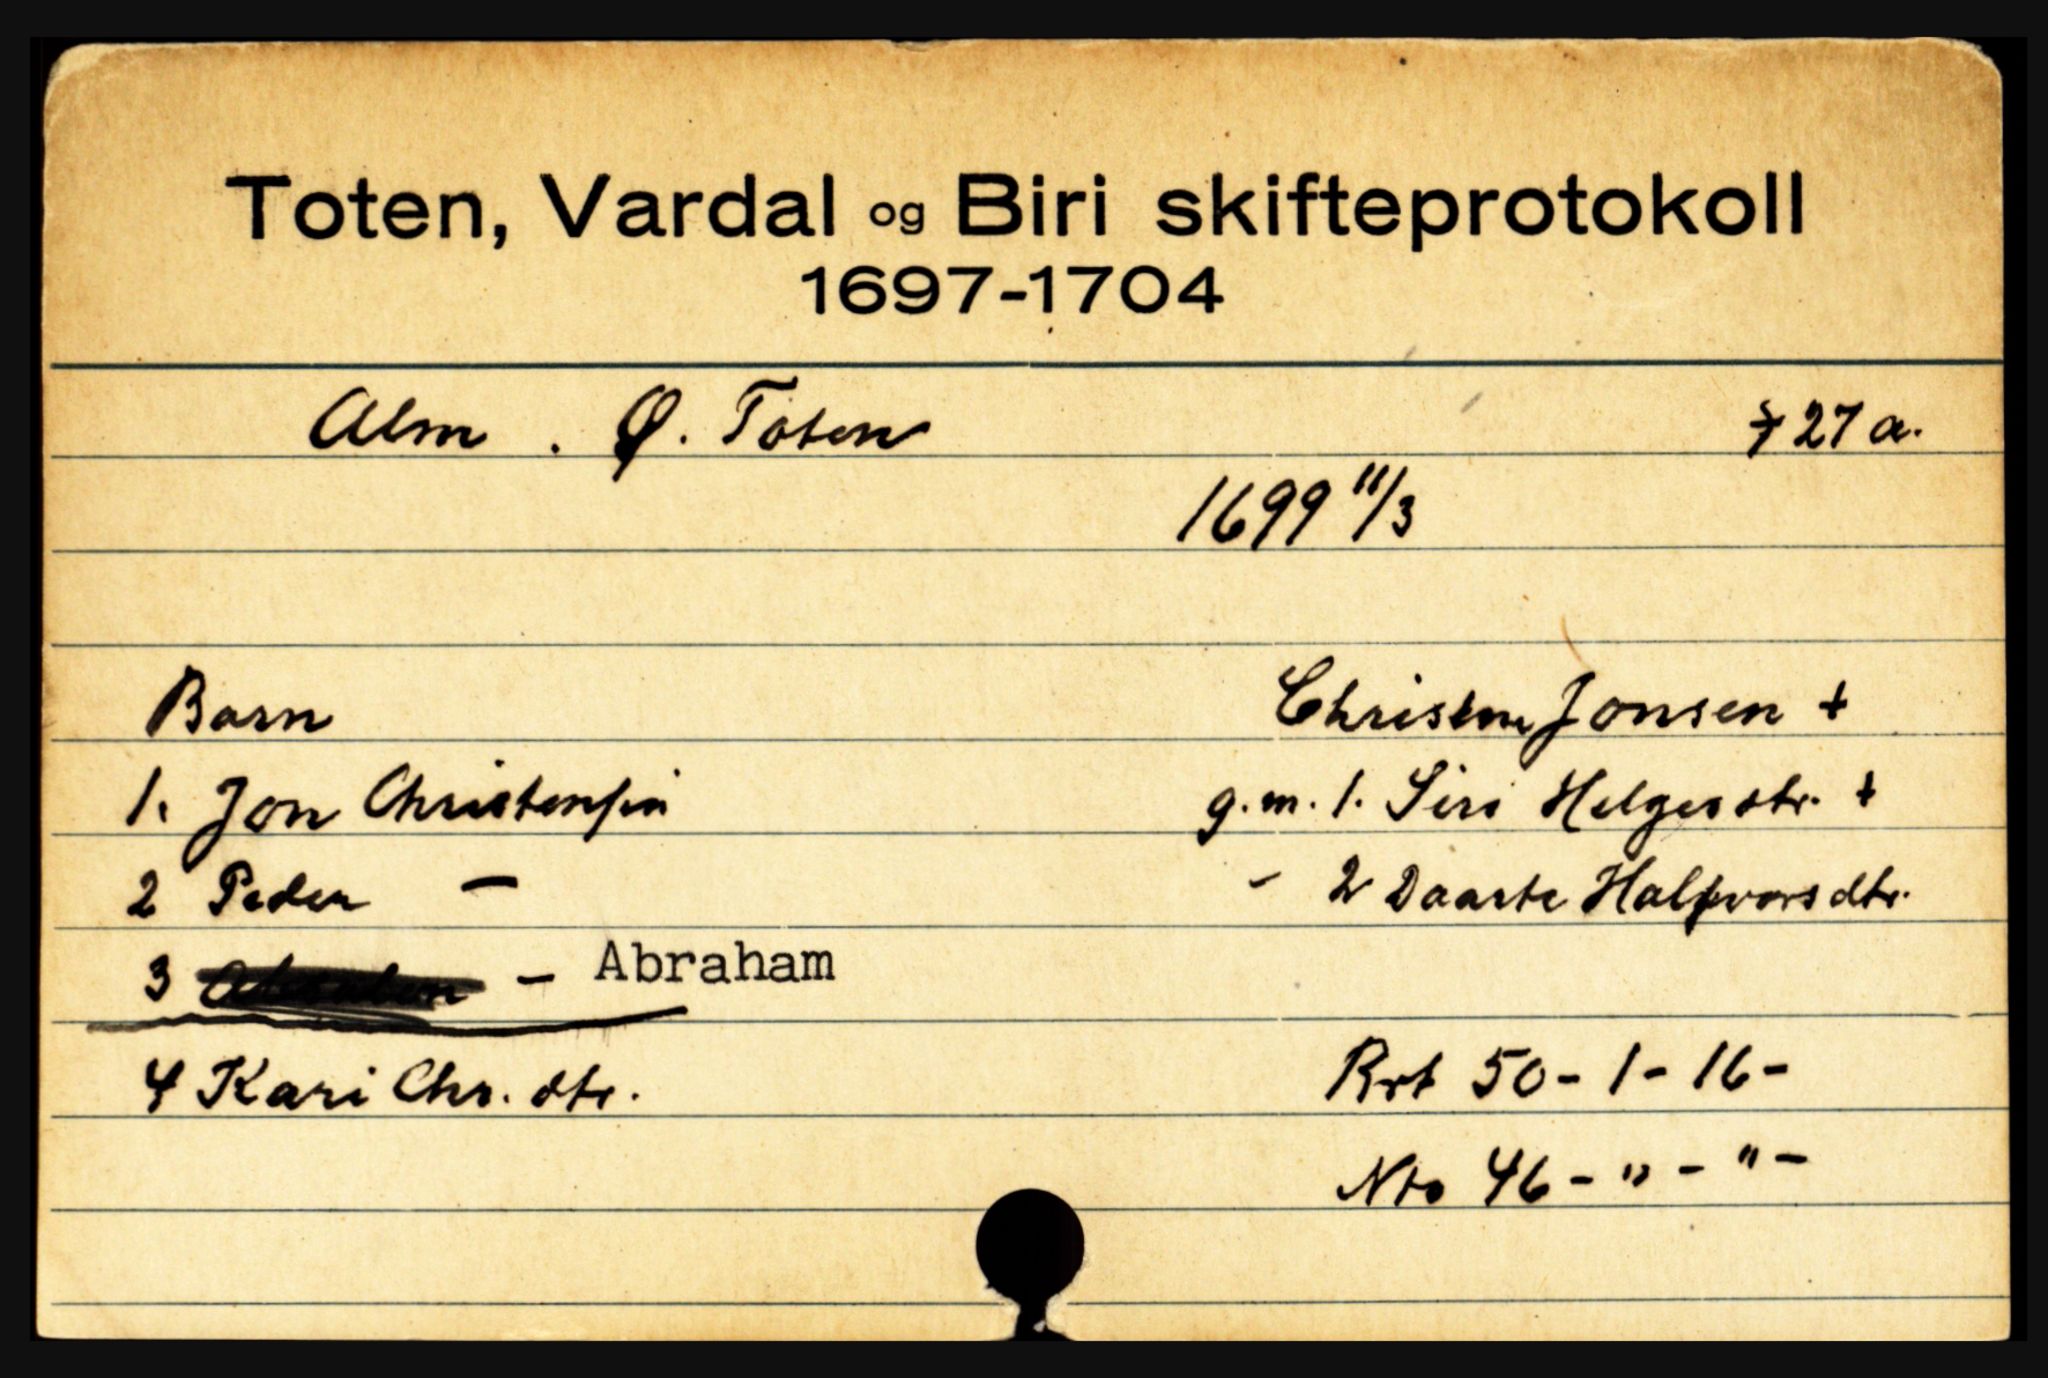 Toten, Vardal og Biri skifteprotokoll
1697-1704
Alm . Ø. Toten 727 a.
1699 11/3
Barn Christen Jonsen +
1. Jon Christensen g.m. 1. Siri Helgesdtr. +
2 Peder — - 2 Daarte Halfvorsdtr.
3 - Abraham
4 Kari Chr. dtr. Brt 50 - 1 - 16 -
Nto 46 - " - " -